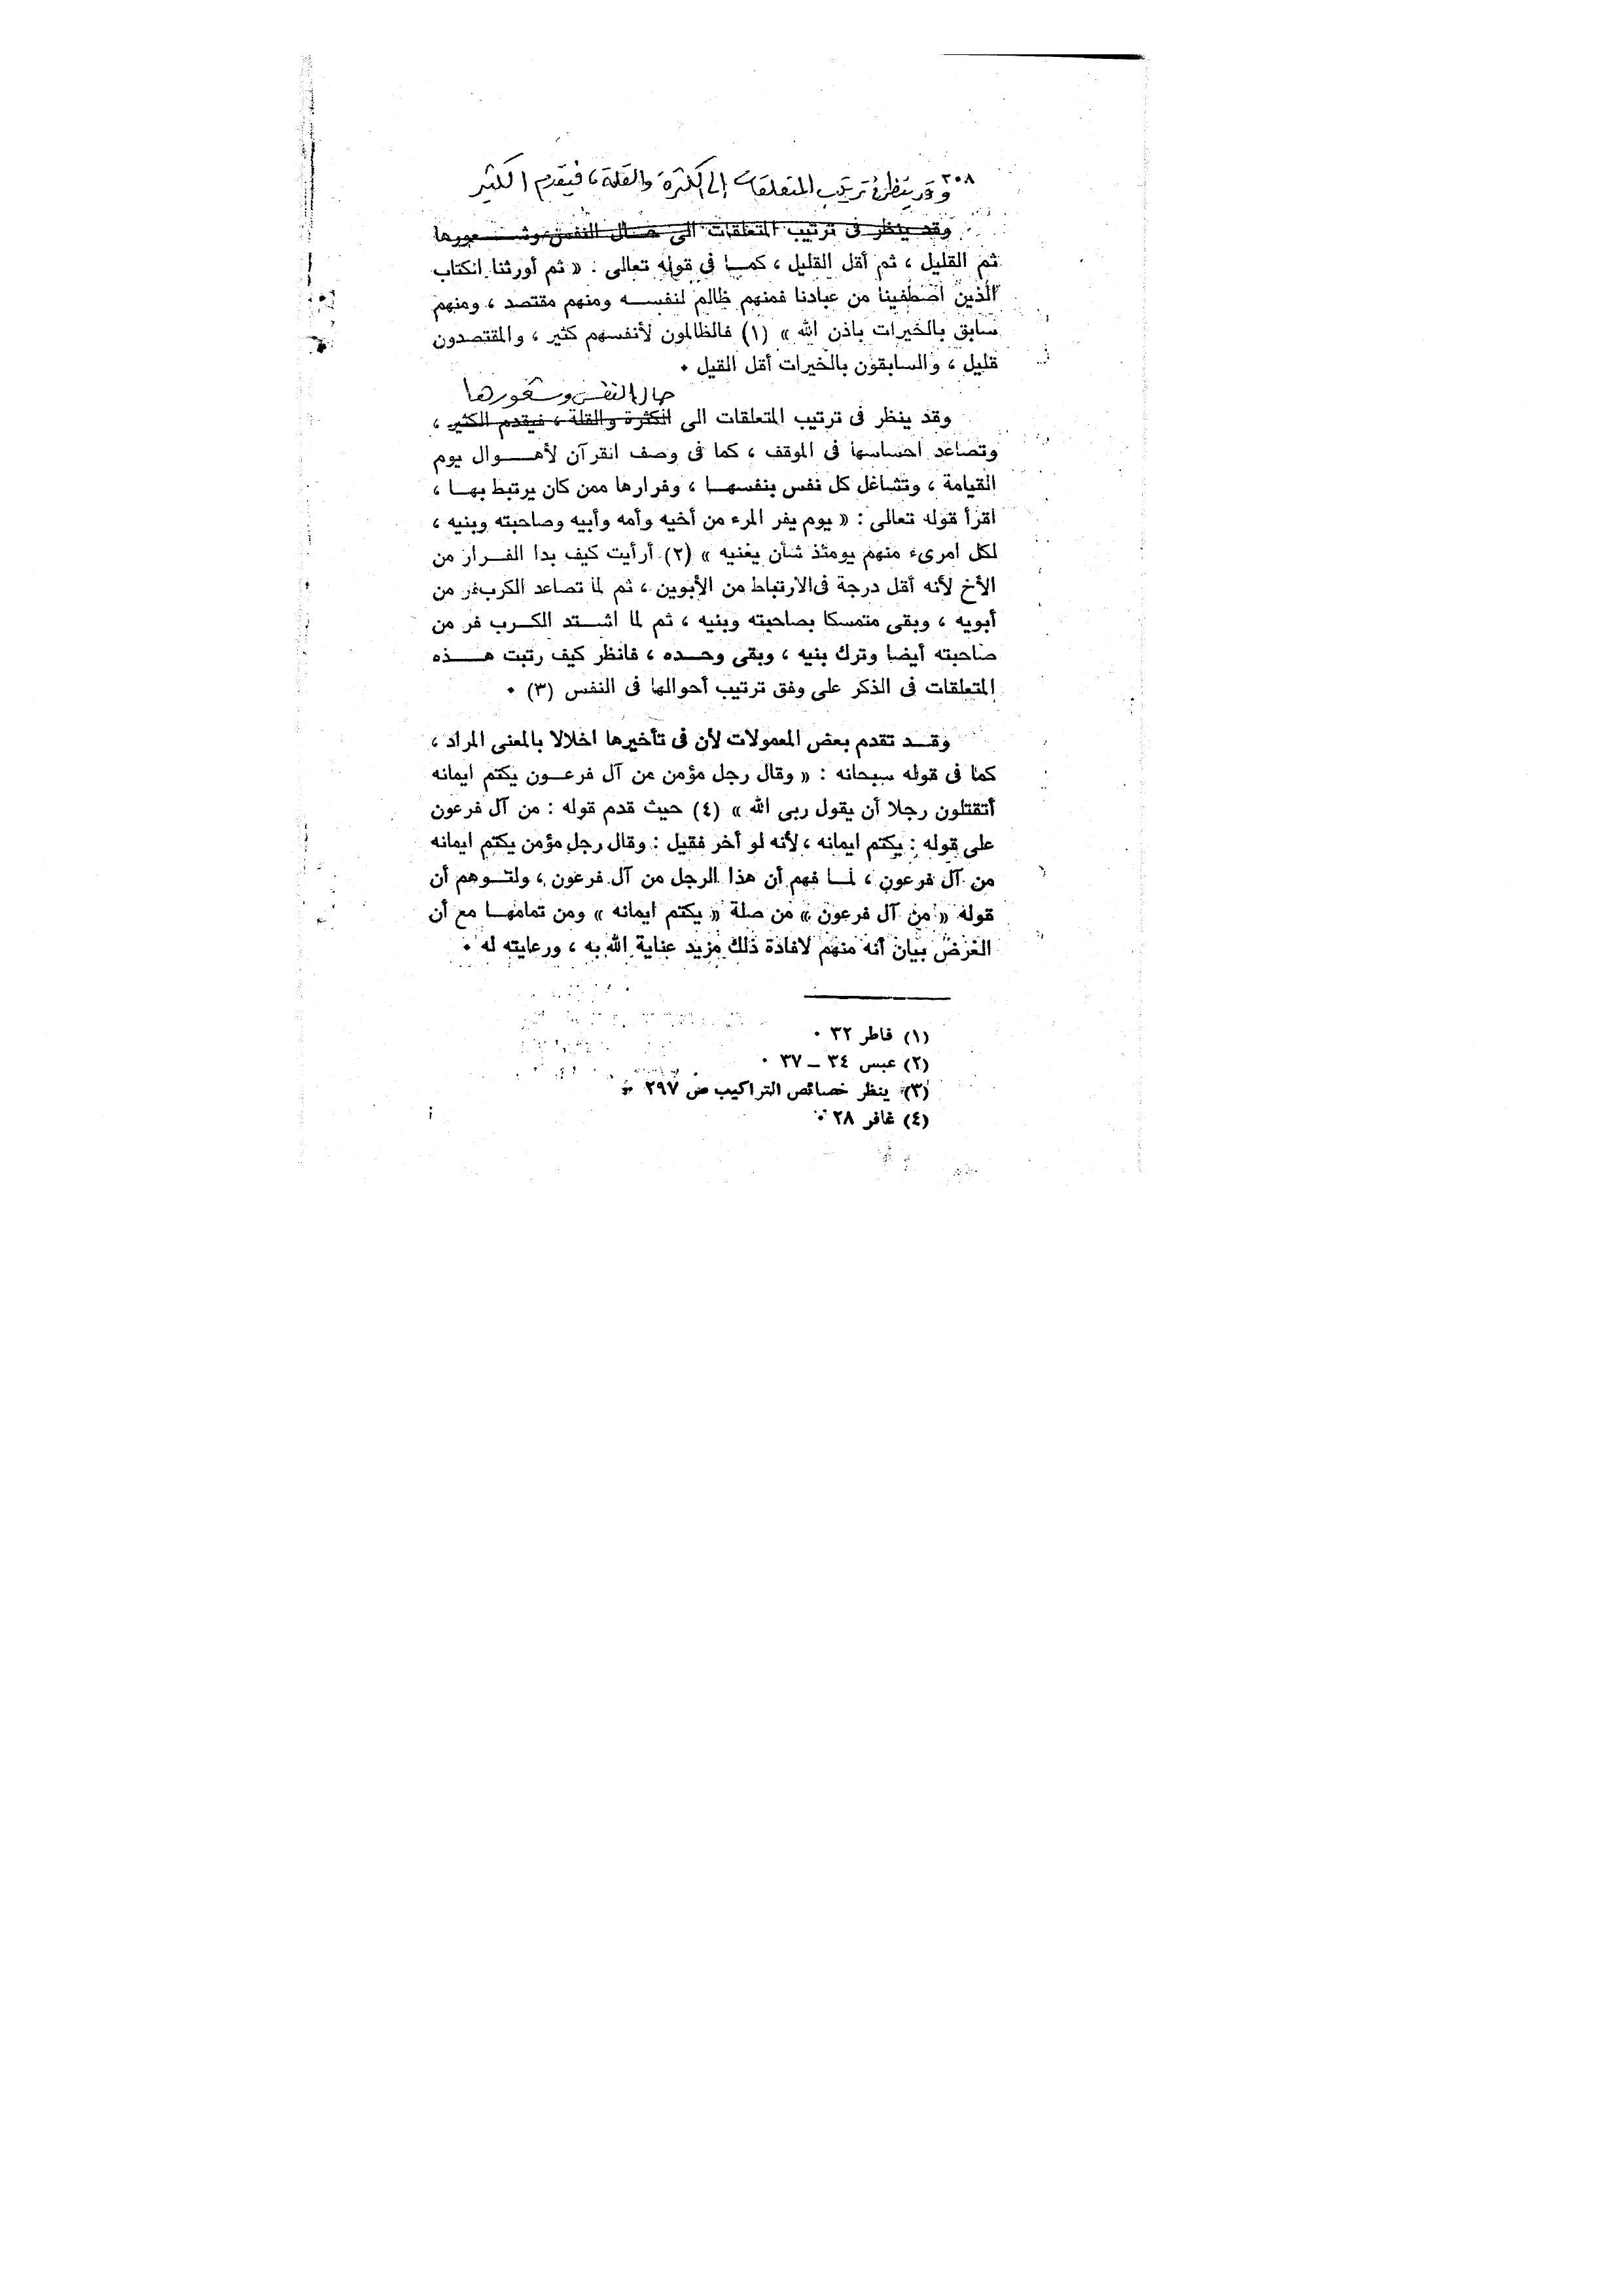 ٢٠٨
وقد ينظر فى ترتيب المتعلقات إلى الكثرة والقلة ، فيقدم الكثير
وقد ينظر فى ترتيب المتعلقات الى حال النفس وشعورها
ثم القليل ، ثم أقل القليل ، كما فى قوله تعالى : « ثم أورثنا الكتاب
الذين اصطفينا من عبادنا فمنهم ظالم لنفسه ومنهم مقتصد ، ومنهم
سابق بالخيرات باذن الله » (١) فالظالمون لأنفسهم كثير ، والمقتصدون
قليل ، والسابقون بالخيرات أقل القيل .
حال النفس وشعورها
وقد ينظر فى ترتيب المتعلقات الى الكثرة والقلة ، فيقدم الكثير ،
وتصاعد احساسها فى الموقف ، كما فى وصف القرآن لأهوال يوم
القيامة ، وتشاغل كل نفس بنفسها ، وفرارها ممن كان يرتبط بها ،
اقرأ قوله تعالى : « يوم يفر المرء من أخيه وأمه وأبيه وصاحبته وبنيه ،
لكل امرىء منهم يومئذ شأن يغنيه » (٢) أرأيت كيف بدا الفرار من
الأخ لأنه أقل درجة فى الارتباط من الأبوين ، ثم لما تصاعد الكرب فر من
أبويه ، وبقى متمسكا بصاحبته وبنيه ، ثم لما اشتد الكرب فر من
صاحبته أيضا وترك بنيه ، وبقى وحده ، فانظر كيف رتبت هذه
المتعلقات فى الذكر على وفق ترتيب أحوالها فى النفس (٣) .
وقد تقدم بعض المعمولات لأن فى تأخيرها اخلالا بالمعنى المراد ،
كما فى قوله سبحانه : « وقال رجل مؤمن من آل فرعون يكتم ايمانه
أتقتلون رجلا أن يقول ربى الله » (٤) حيث قدم قوله : من آل فرعون
على قوله : يكتم ايمانه ، لأنه لو أخر فقيل : وقال رجل مؤمن يكتم ايمانه
من آل فرعون ، لما فهم أن هذا الرجل من آل فرعون ، ولتوهم أن
قوله « من آل فرعون » من صلة « يكتم ايمانه » ومن تمامها مع أن
الغرض بيان أنه منهم لافادة ذلك مزيد عناية الله به ، ورعايته له .
(١) فاطر ٣٢ .
(٢) عبس ٣٤ ـ ٣٧ .
(٣) ينظر خصائص التراكيب ص ٢٩٧ .
(٤) غافر ٢٨ .